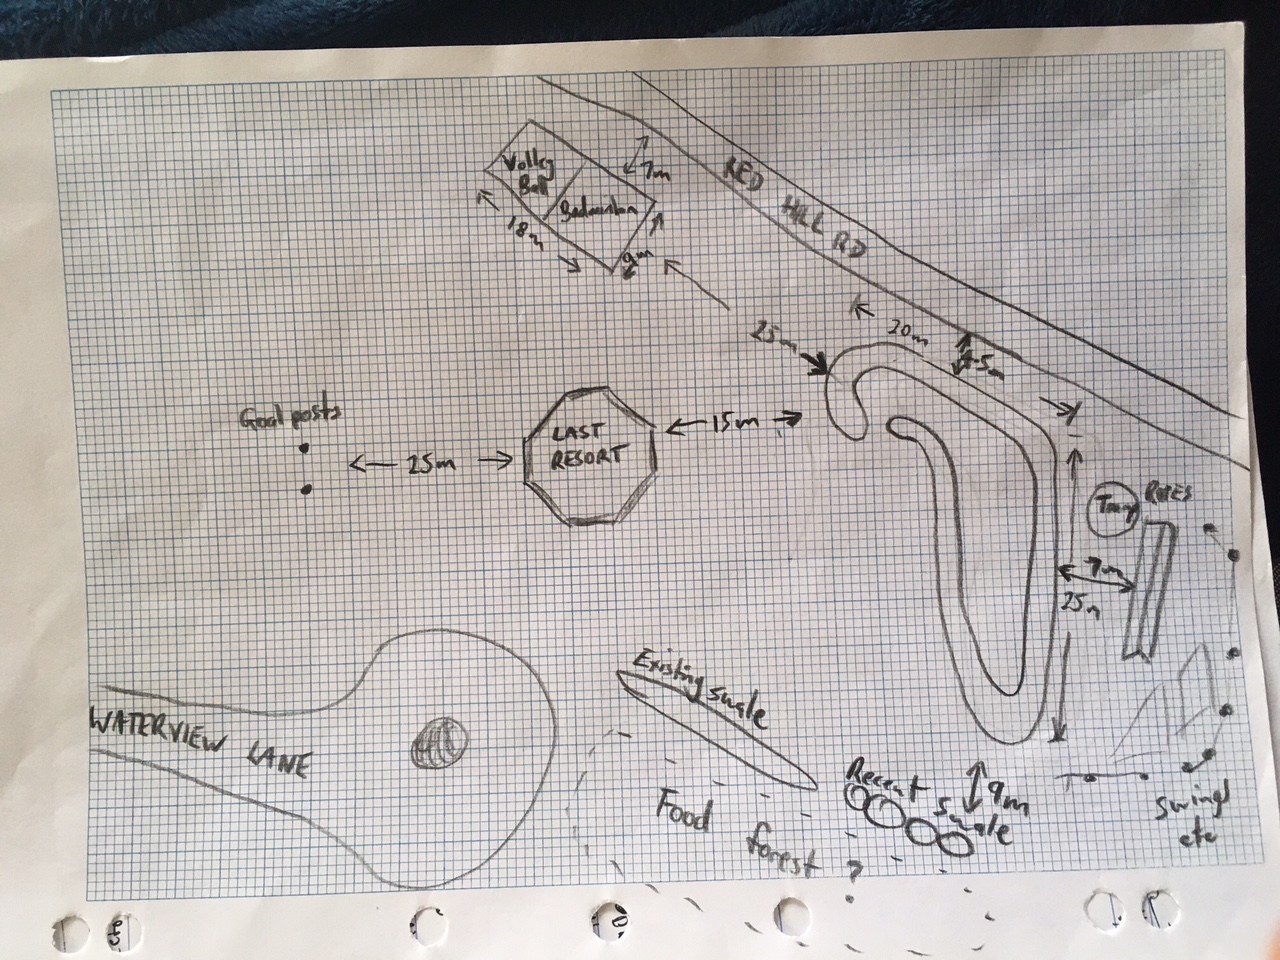 Volley
Ball
Badminton
7m
18m
9m
RED
HILL RD
25m
20m
5m
Goal posts
25m
LAST
RESORT
15m
7m
25m
Existing swale
WATERVIEW LANE
Food
forest ?
Recent
swale
9m
Swings
etc